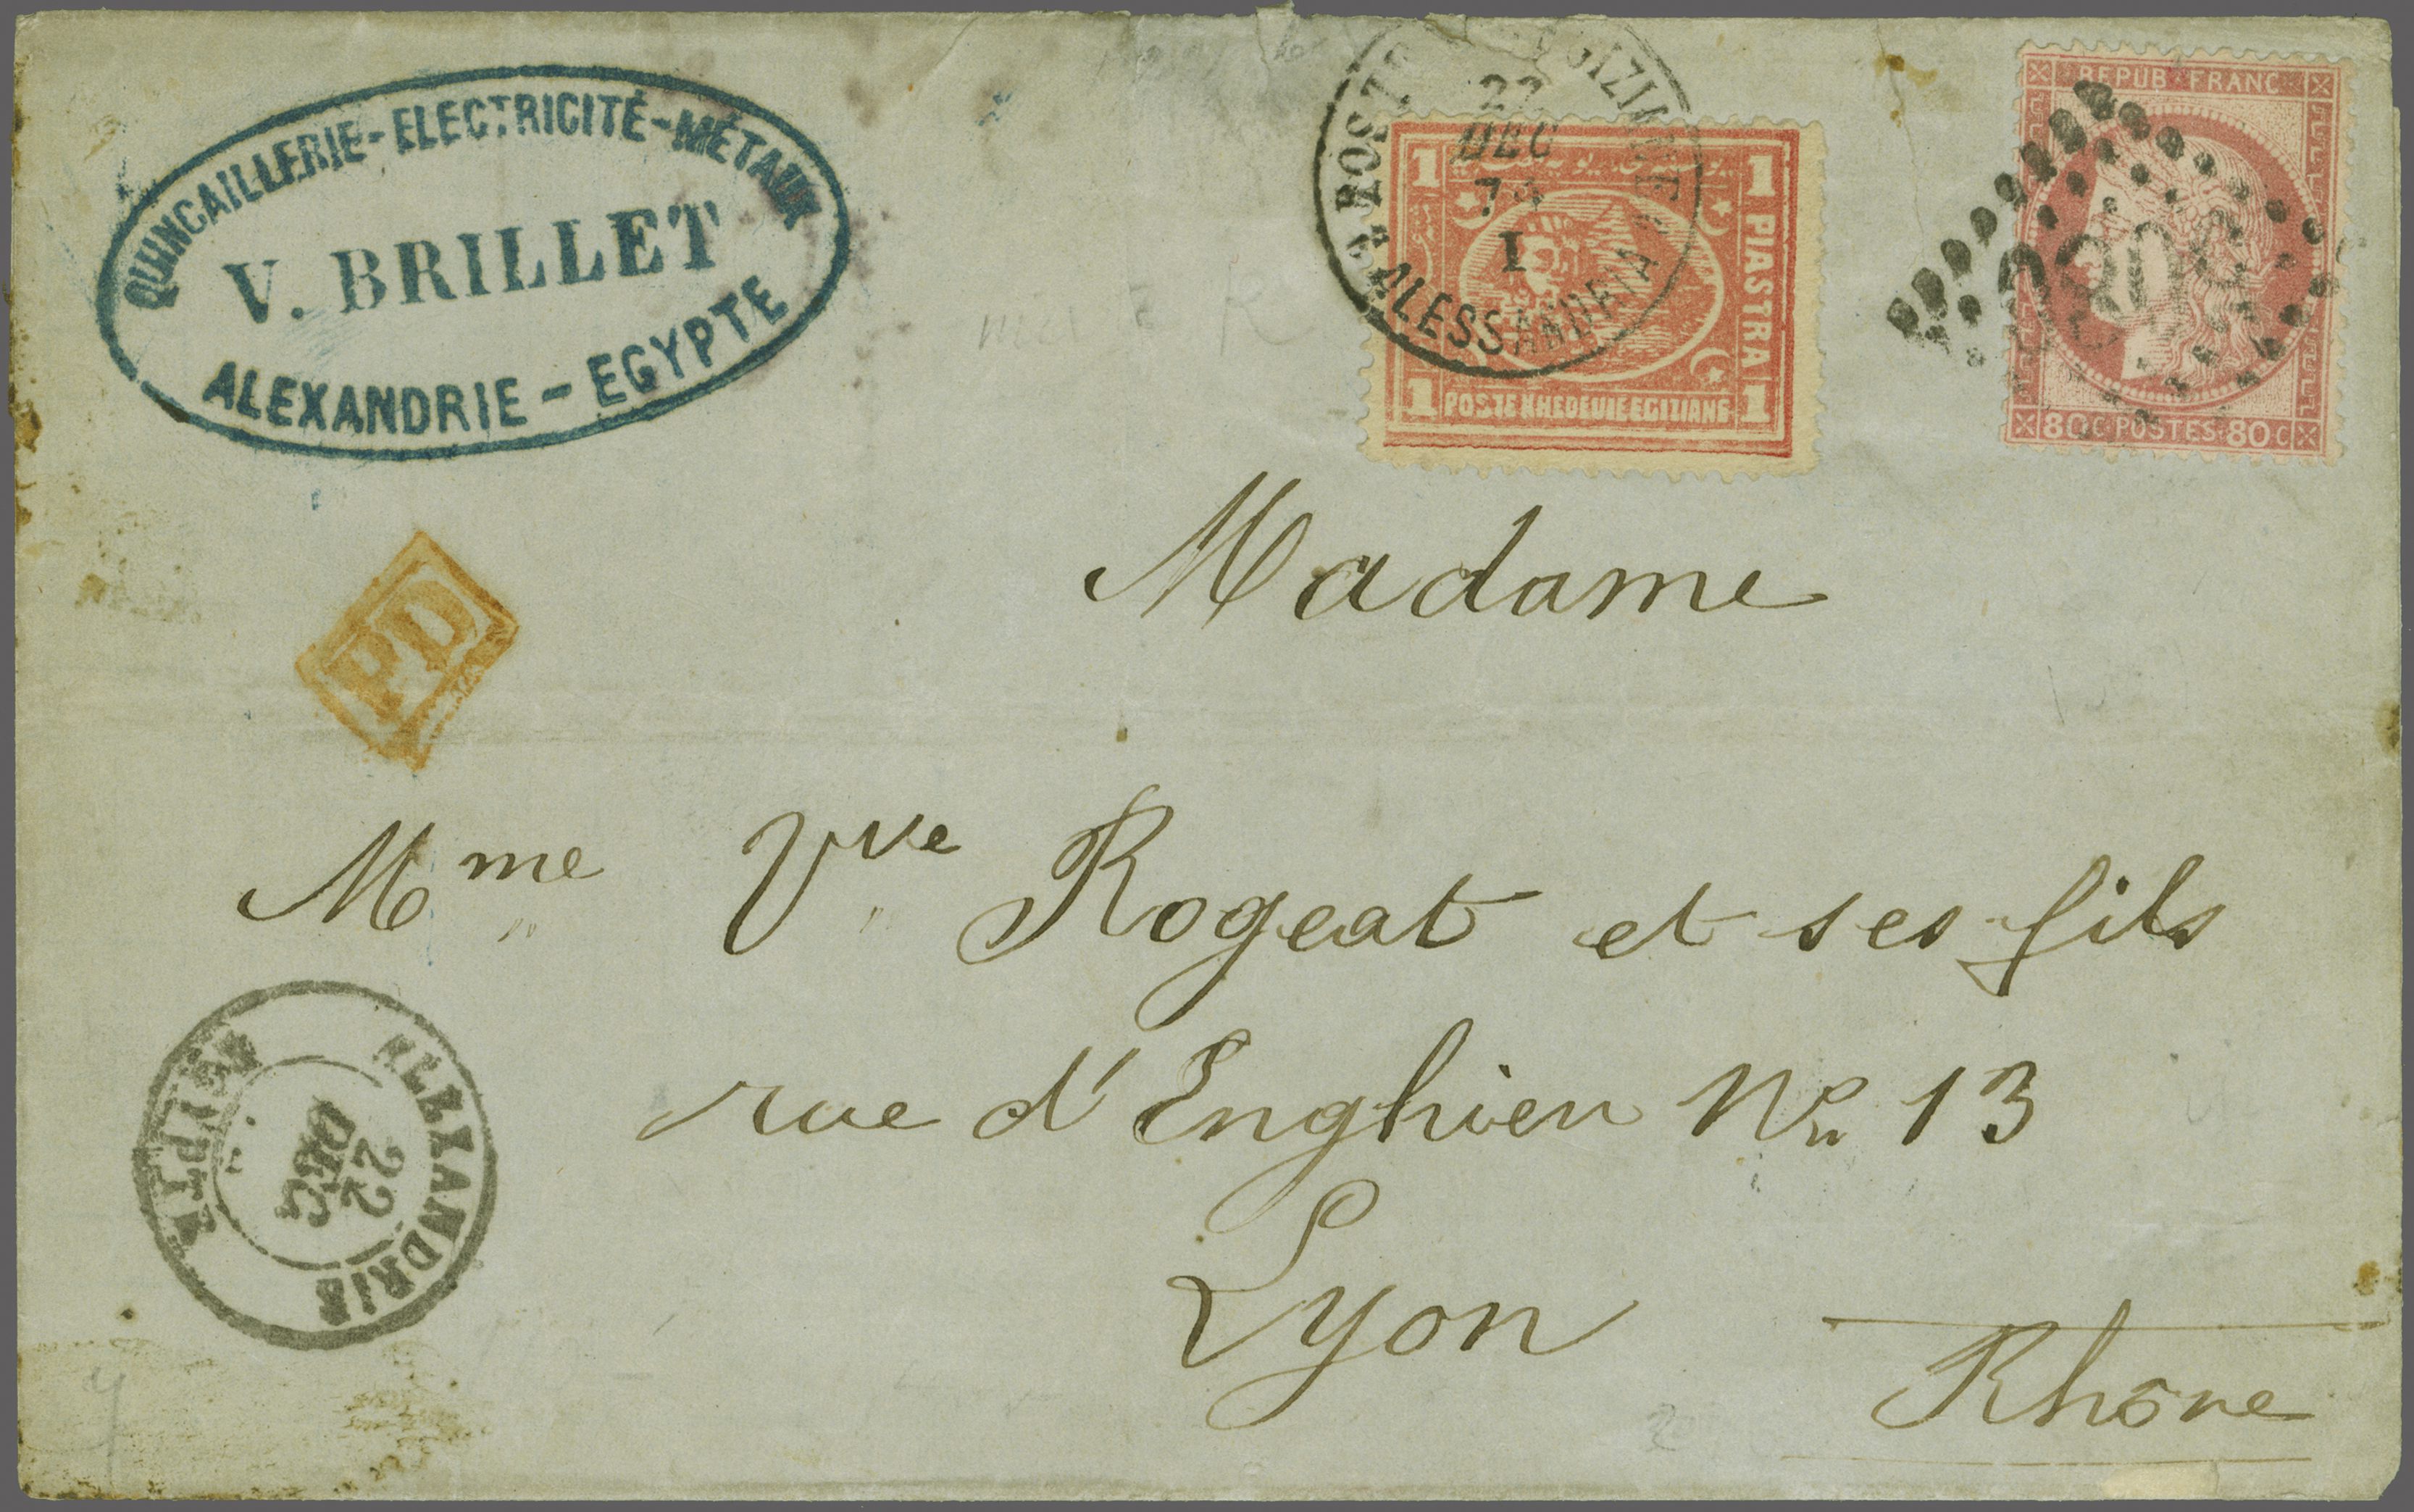 QUINCAILLERIE-ELECTRICITÉ-MÉTAUX
V. BRILLET
ALEXANDRIE - EGYPTE
22
DEC
ALESSANDRIA
1 1
PIASTRA
1 POSTE KHEDEUIE EGIZIANE 1
REPUB FRANC
80C POSTES 80C
PD
Madame
Mme Vve Rogeat et ses fils
rue d'Enghien No 13
Lyon
Rhône
ALEXANDRIE
22
DEC
EGYPTE